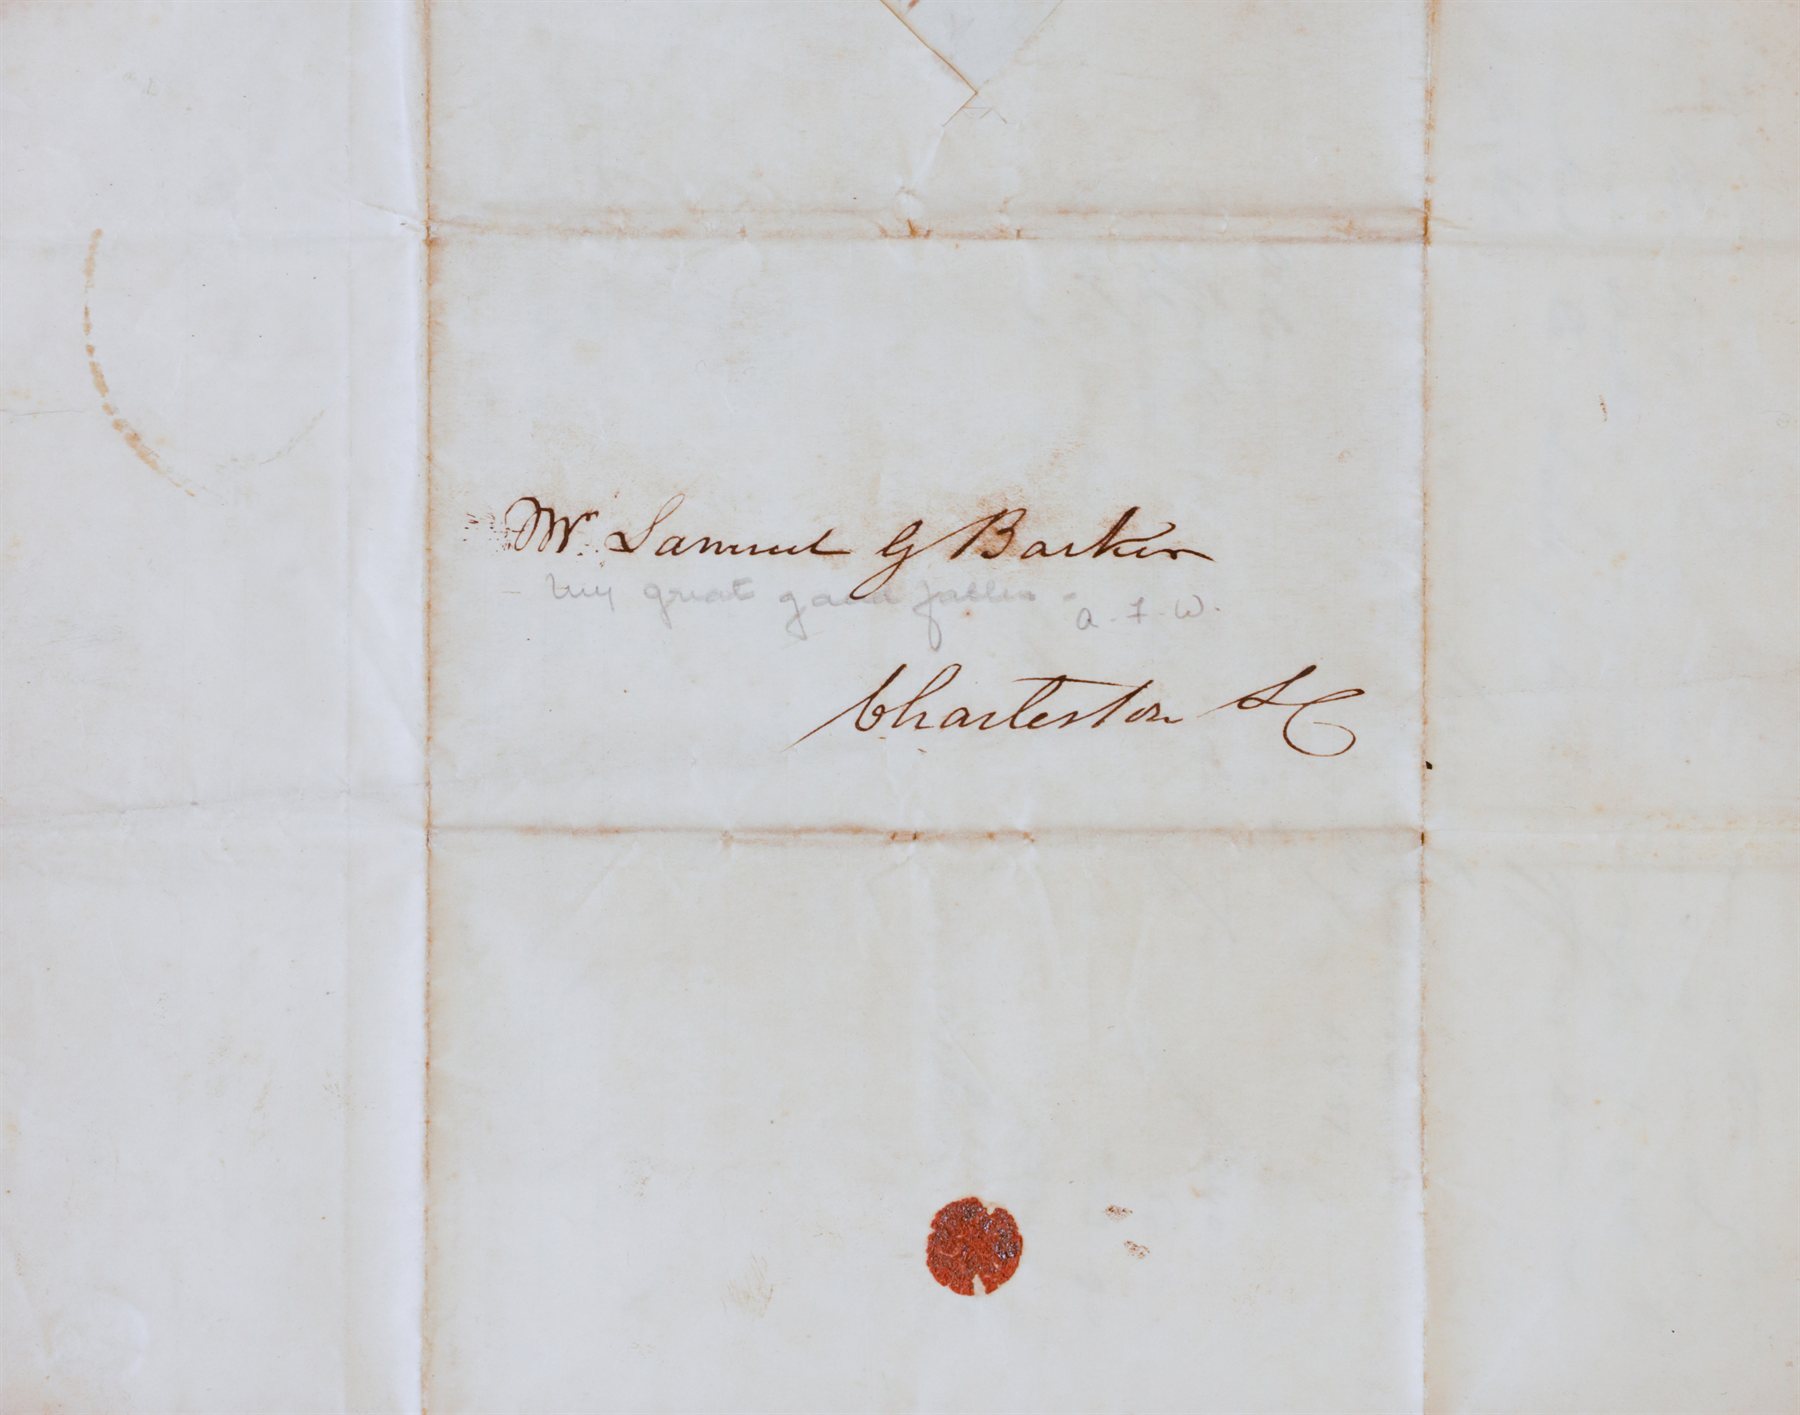 Mr Samuel G Barker
- My great grand father -
A. F. W.
Charleston SC